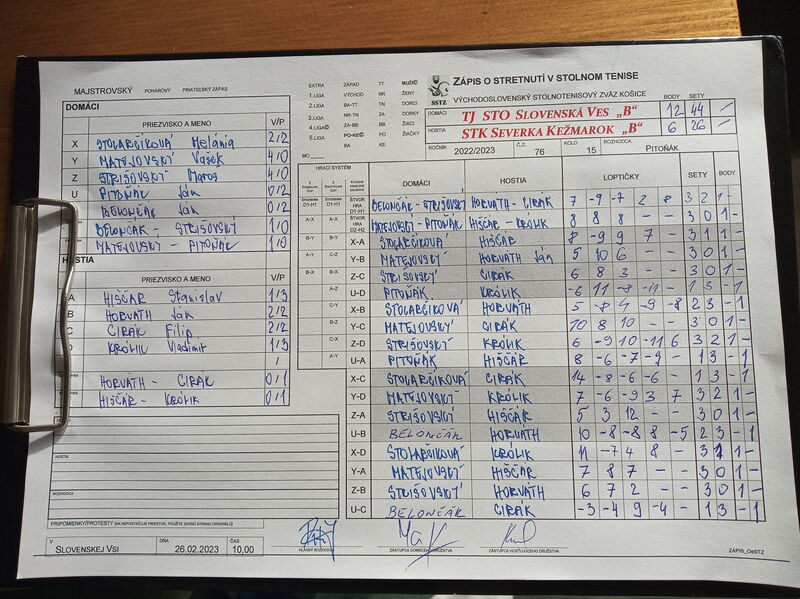 MAJSTROVSKÝ POHÁROVÝ PRIATEĽSKÝ ZÁPAS
DOMÁCI
PRIEZVISKO A MENO V/P
X STOLARČÍKOVÁ Melánia 2/2
Y MATEJOVSKÝ Vašek 4/0
Z STRIŠOVSKÝ Maroš 4/0
U PITOŇÁK Ján 0/2
BELONČÁK Ján 0/2
BELONČÁK - STRIŠOVSKÝ 1/0
MATEJOVSKÝ - PITOŇÁK 1/0
HOSTIA
PRIEZVISKO A MENO V/P
A HIŠČÁR Stanislav 1/3
B HORVÁTH Ján 2/2
C CIRÁK Filip 2/2
D KRÓLIK Vladimír 1/3
/
HORVÁTH - CIRÁK 0/1
HIŠČÁR - KRÓLIK 0/1
HOSTIA
ROZHODCA
PRIPOMIENKY/PROTESTY (AK NEPOSTAČUJE PRIESTOR, POUŽITE ZADNÚ STRANU ORIGINÁLU)
V SLOVENSKEJ VSI DŇA 26.02.2023 ČAS 10,00
EXTRA ZÁPAD TT MUŽI
1.LIGA VÝCHOD NR ŽENY
2.LIGA BA-TT TN DORCI
3.LIGA NR-TN ZA DORKY
4.LIGA ZA-BB BB ŽIACI
5.LIGA PO-KE PO ŽIAČKY
BA KE
MČ
SSTZ
ZÁPIS O STRETNUTÍ V STOLNOM TENISE
VÝCHODOSLOVENSKÝ STOLNOTENISOVÝ ZVÄZ KOŠICE
BODY SETY
DOMÁCI TJ STO SLOVENSKÁ VES „B" 12 44 -
HOSTIA STK SEVERKA KEŽMAROK „B" 6 26 -
ROČNÍK 2022/2023 Č.Z. 76 KOLO 15 ROZHODCA PITOŇÁK
HRACÍ SYSTÉM
DOMÁCI HOSTIA LOPTIČKY SETY BODY
ŠTVORHRA D1-H1 BELONČÁK - STRIŠOVSKÝ HORVÁTH - CIRÁK 7 -9 -7 2 8 3 2 1 -
ŠTVORHRA D2-H2 MATEJOVSKÝ - PITOŇÁK HIŠČÁR - KRÓLIK 8 8 8 - - 3 0 1 -
X-A STOLARČÍKOVÁ HIŠČÁR 8 -9 9 7 - 3 1 1 -
Y-B MATEJOVSKÝ HORVÁTH Ján 5 10 6 - - 3 0 1 -
Z-C STRIŠOVSKÝ CIRÁK 6 8 3 - - 3 0 1 -
U-D PITOŇÁK KRÓLIK -6 11 -8 -11 - 1 3 - 1
X-B STOLARČÍKOVÁ HORVÁTH 5 -8 4 -9 -8 2 3 - 1
Y-C MATEJOVSKÝ CIRÁK 10 8 10 - - 3 0 1 -
Z-D STRIŠOVSKÝ KRÓLIK 6 -9 10 -11 6 3 2 1 -
U-A PITOŇÁK HIŠČÁR 8 -6 -7 -9 - 1 3 - 1
X-C STOLARČÍKOVÁ CIRÁK 14 -8 -6 -6 - 1 3 - 1
Y-D MATEJOVSKÝ KRÓLIK 7 -6 -9 3 7 3 2 1 -
Z-A STRIŠOVSKÝ HIŠČÁR 5 3 12 - - 3 0 1 -
U-B BELONČÁK HORVÁTH 10 -8 -8 8 -5 2 3 - 1
X-D STOLARČÍKOVÁ KRÓLIK 11 -7 4 8 - 3 1 1 -
Y-A MATEJOVSKÝ HIŠČÁR 7 8 7 - - 3 0 1 -
Z-B STRIŠOVSKÝ HORVÁTH 6 7 2 - - 3 0 1 -
U-C BELONČÁK CIRÁK -3 -4 9 -4 - 1 3 - 1
HLAVNÝ ROZHODCA ZÁSTUPCA DOMÁCEHO DRUŽSTVA ZÁSTUPCA HOSŤUJÚCEHO DRUŽSTVA
ZÁPIS_OsSTZ